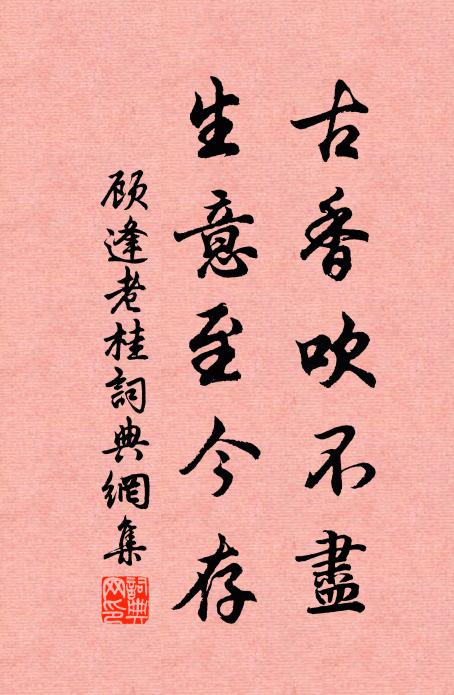 古香吹不盡
生意至今存
顾逢老桂詞典網集
詞典網印